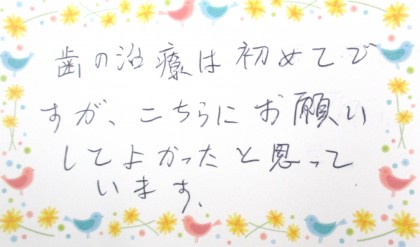 歯の治療は初めてで
すが、こちらにお願い
してよかったと思って
います。